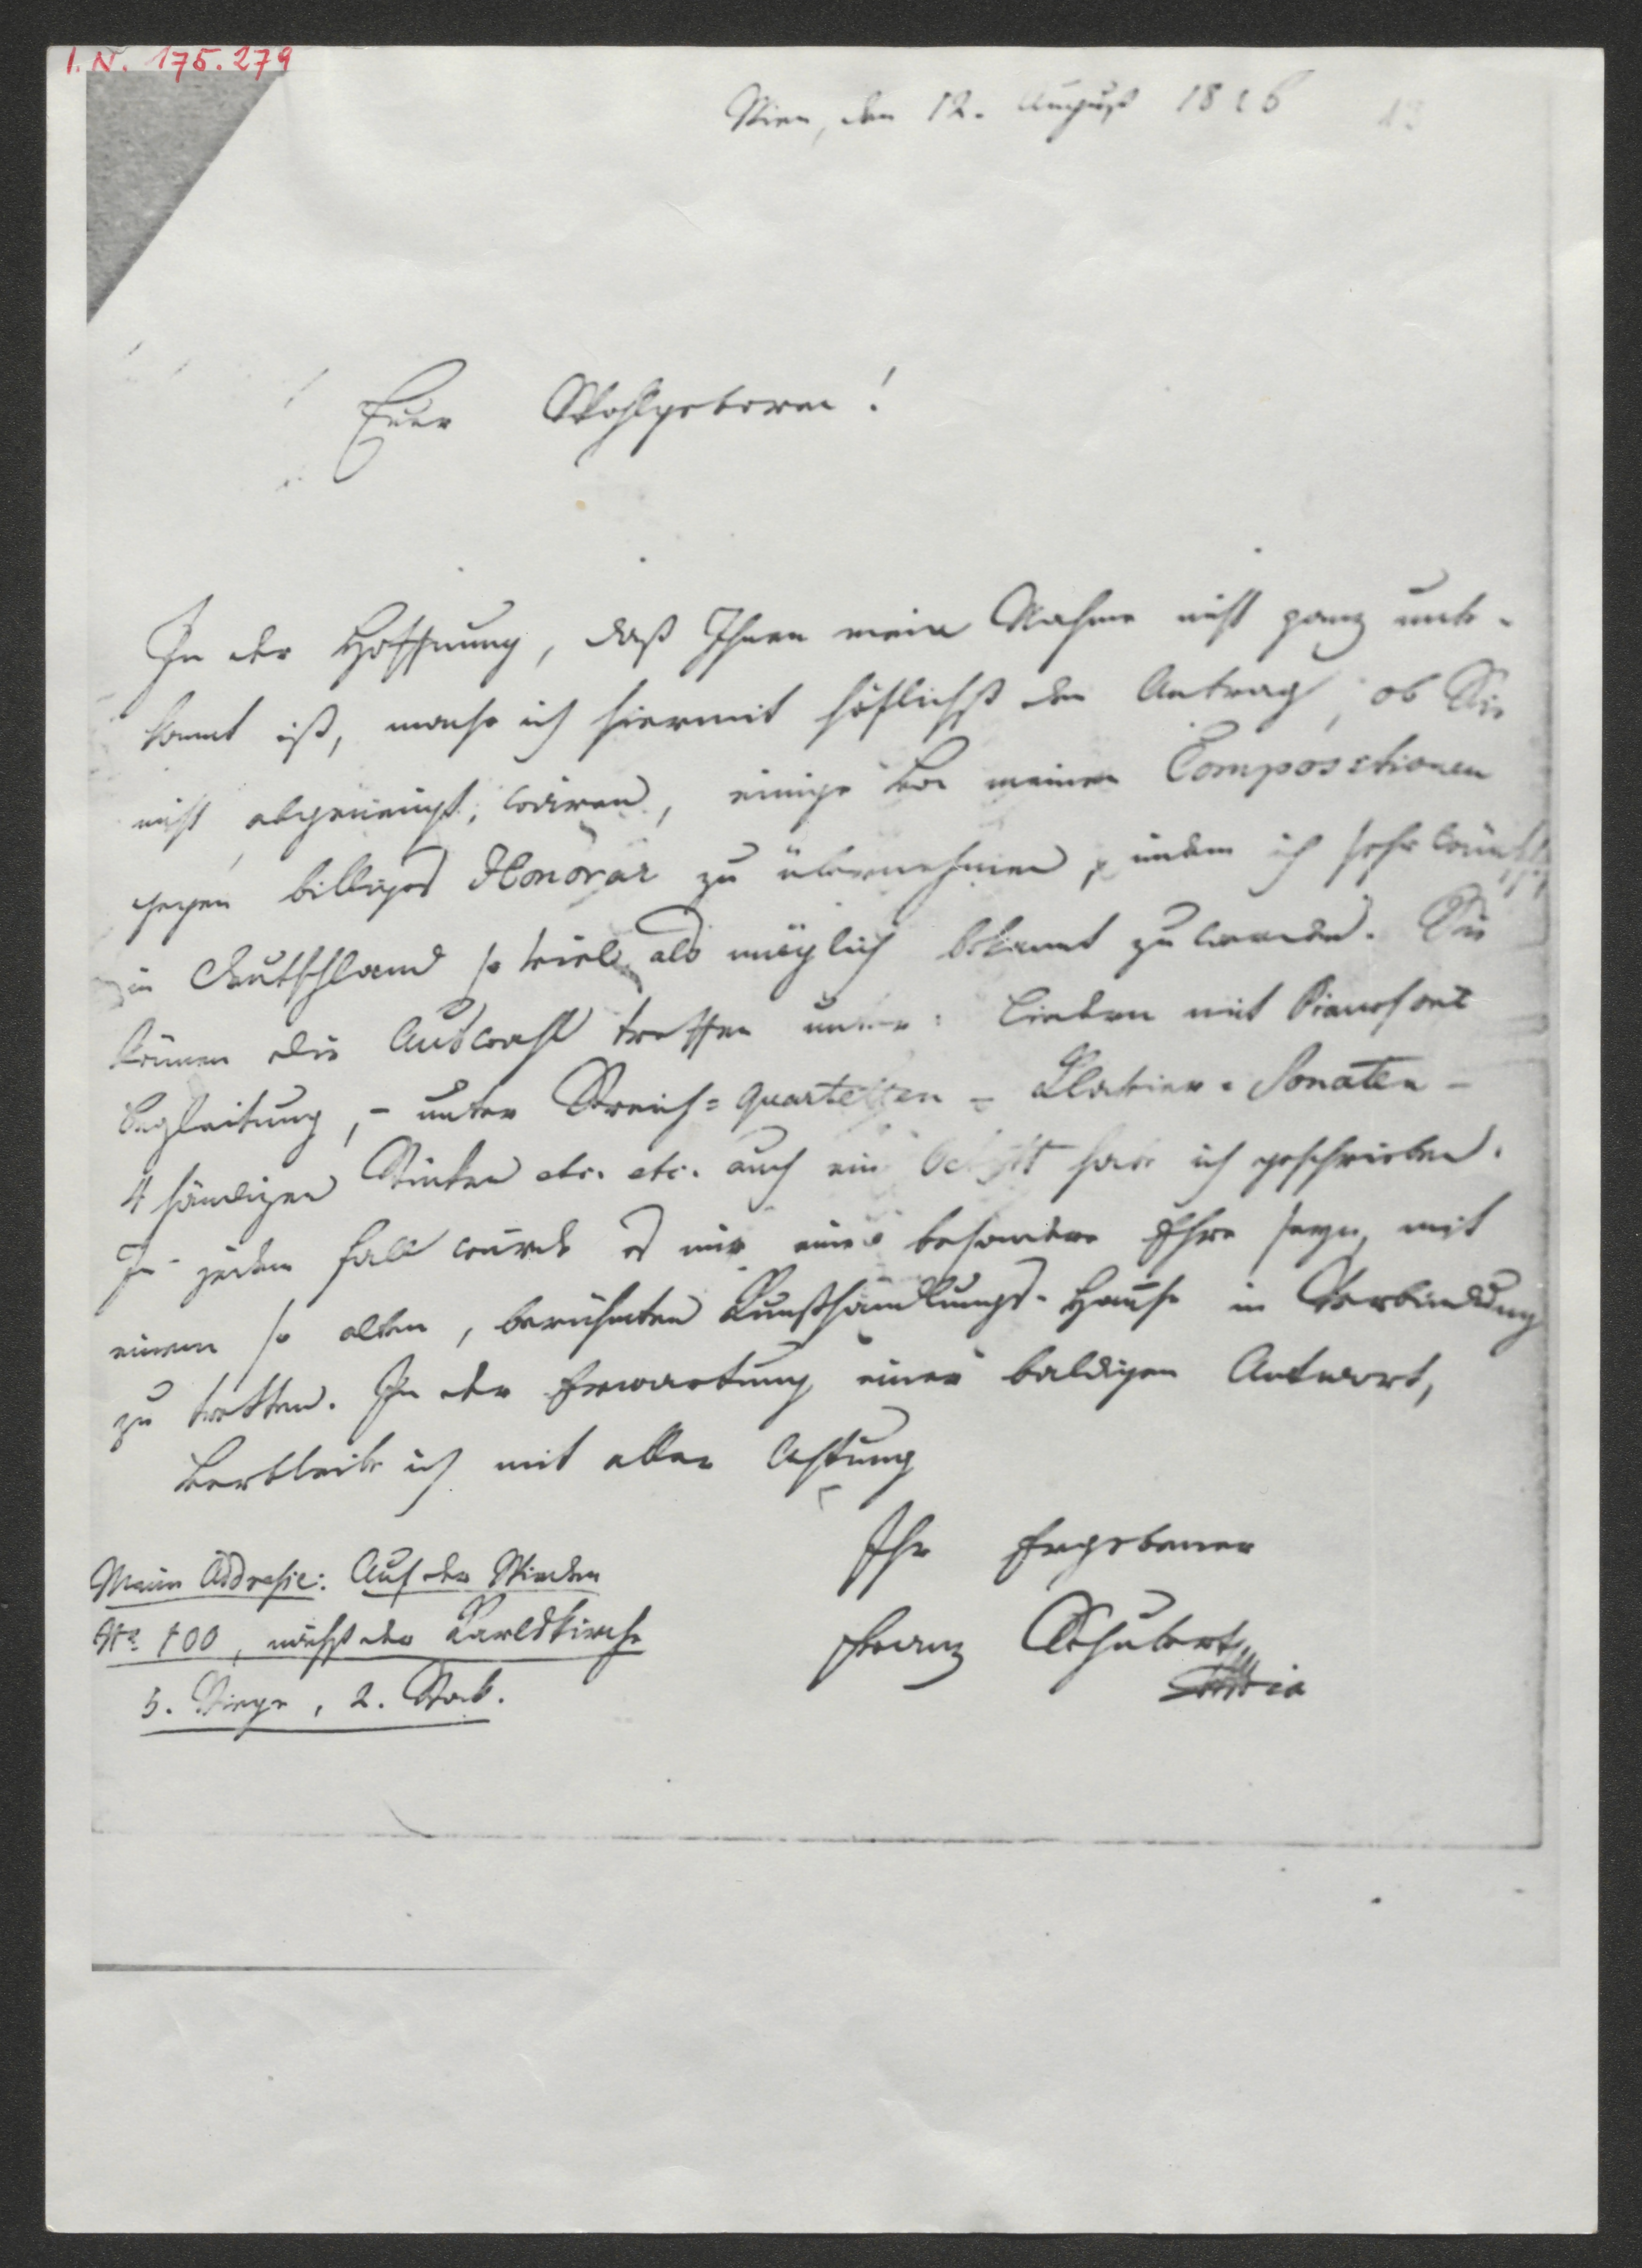 I. N. 175.279
Wien, den 12. August 1826
Euer Wohlgeboren!
In der Hoffnung, daß Ihnen mein Nahme nicht ganz unbe-
kannt ist, mache ich hiermit höflichst den Antrag, ob Sie
nicht abgeneigt wären, einige von meinen Compositionen
gegen billiges Honorar zu übernehmen, indem ich sehr wünsche,
in Deutschland so viel als möglich bekannt zu werden. Sie
können die Auswahl treffen unter: Liedern mit Pianoforte
Begleitung, – unter Streich=Quartetten – Klavier=Sonaten –
4 händigen Stücken etc. etc. auch ein Octett habe ich geschrieben.
In jedem Fall würde es mir eine besondere Ehre seyn, mit
einem so alten, berühmten Kunsthandlungs-Hause in Verbindung
zu tretten. In der Erwartung einer baldigen Antwort,
verbleibe ich mit aller Achtung
Ihr Ergebener
Franz Schubert
Meine Addresse: Auf der Wieden
No 100, nächst der Karlskirche
5. Stiege, 2. Stock.